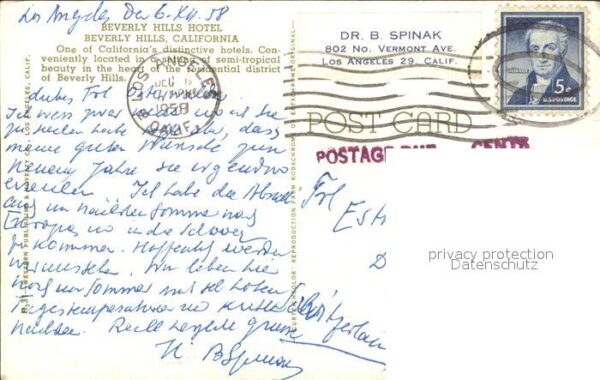 Los Angeles den 6. XII. 58
BEVERLY HILLS HOTEL
BEVERLY HILLS, CALIFORNIA
One of California's distinctive hotels. Con-
veniently located in a setting of semi-tropical
beauty in the heart of the residential district
of Beverly Hills.
DR. B. SPINAK
802 NO. VERMONT AVE.
LOS ANGELES 29, CALIF.
LOS ANGELES
DEC 6
1958
CALIF.
5¢
U.S. POSTAGE
POST CARD
POSTAGE DUE CENTS
Liebes Frl
Ich weiss zwar nicht wo ich Sie
zu suchen habe hoffe aber, dass
meine guten Wünsche zum
Neuen Jahre Sie irgendwo
ereilen. Ich habe die Absicht
im nächsten Sommer nach
Europa und in die Schweiz
zu kommen. Hoffentlich werden
wir uns sehen. Wir leben hier
noch im Sommer mit sehr hohen
Tagestemperaturen und kühlen
Nächten. Recht herzliche Grüsse
B Spinak
Frl
Esth
privacy protection
Datenschutz